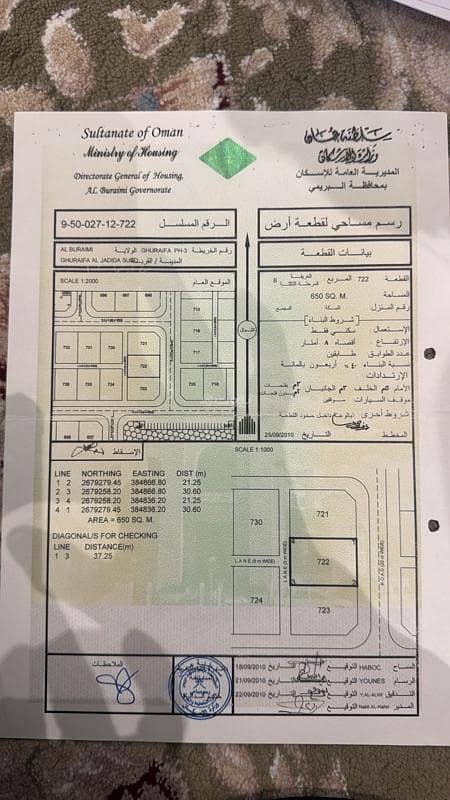 Sultanate of Oman
Ministry of Housing
Directorate General of Housing,
AL Buraimi Governorate
سلطنة عمان
وزارة الإسكان
المديرية العامة للإسكان
بمحافظة البريمي
9-50-027-12-722 الرقم المسلسل
رسم مساحي لقطعة أرض
AL BURAIMI الولاية GHURAIFA PH-3 رقم الخريطة
GHURAIFA AL JADIDA المدينة / القرية
بيانات القطعة
SCALE 1:2000 الموقع العام
القطعة 722 المربع
المساحة 650 SQ. M.
رقم المنزل السكة المجمع
[شروط البناء]
الإستعمال سكني فقط
الإرتفاع أقصاه ٨ أمتار
عدد الطوابق طابقين
نسبة البناء ٤٠٪ أربعون بالمائة
الإرتدادات
الأمام ٥م الخلف ٣م الجانبان ٣م
موقف السيارات موقفين
شروط أخرى
المخطط التاريخ 25/09/2010
الإسقاط
SCALE 1:1000
LINE NORTHING EASTING DIST (m)
1 2 2679279.45 384866.80 21.25
2 3 2679258.20 384866.80 30.60
3 4 2679258.20 384836.20 21.25
4 1 2679279.45 384836.20 30.60
AREA = 650 SQ. M.
DIAGONAL/S FOR CHECKING
LINE DISTANCE(m)
1 3 37.25
730
721
LANE (6 m WIDE)
722
724
723
الملاحظات
المساح HABOC التوقيع التاريخ 18/09/2010
الرسام YOUNES التوقيع التاريخ 21/09/2010
التدقيق Y.AL-ALWI التوقيع التاريخ 22/09/2010
المدير التوقيع التاريخ